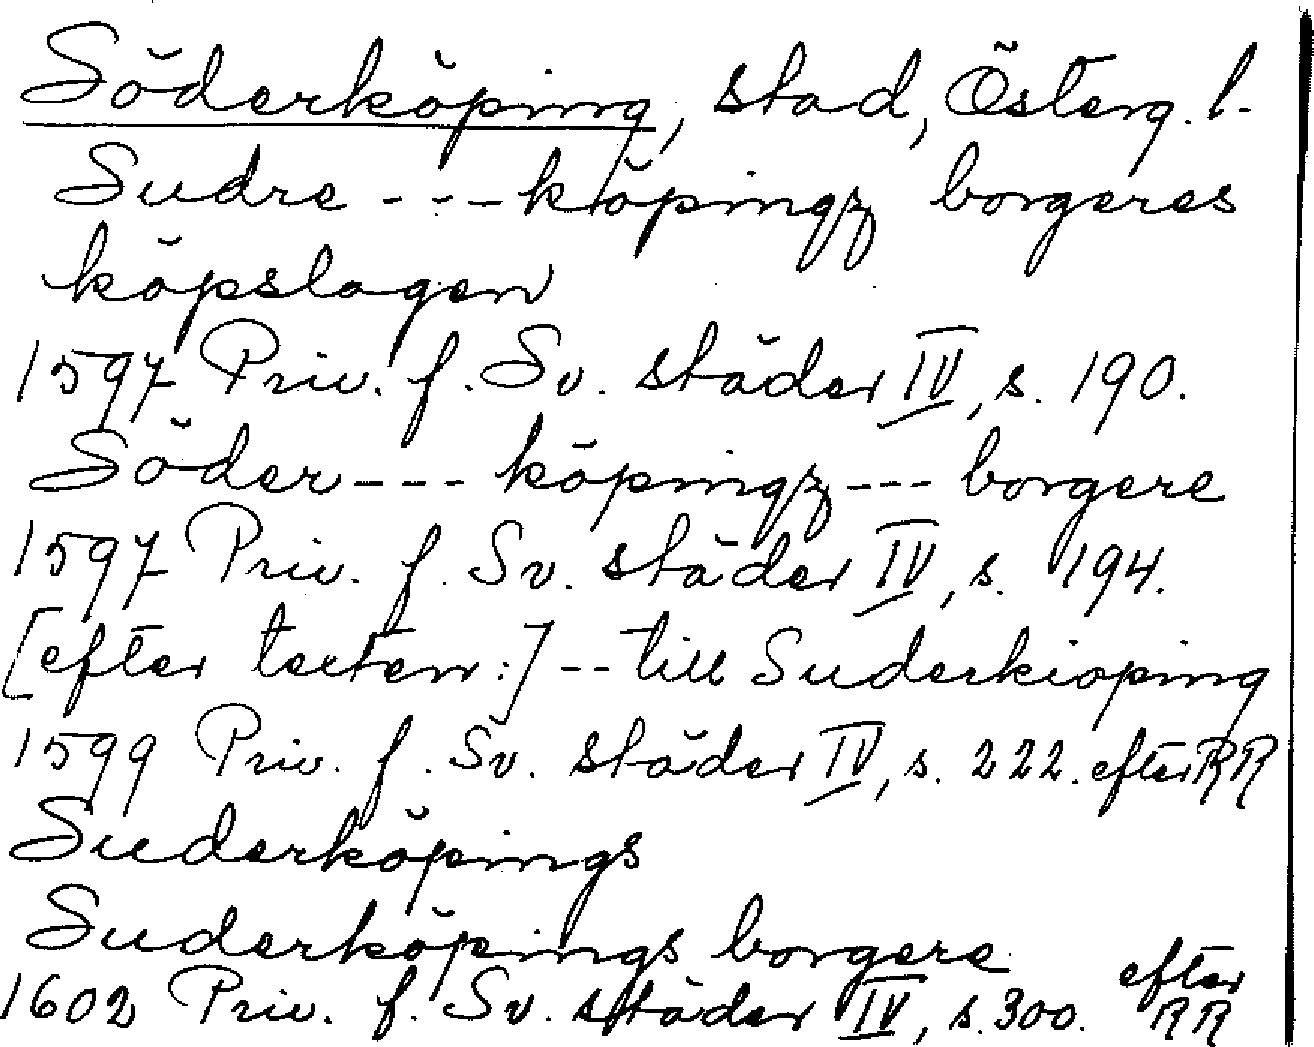 Söderköping, stad, Österg. l.
Sudre - - - köpingz borgeres
köpslagen
1597 Priv. f. Sv. städer IV, s. 190.
Söder - - - köpingz - - - borgere
1597 Priv. f. Sv. städer IV, s. 194.
[efter texten:] - - till Suderkiöping
1599 Priv. f. Sv. städer IV, s. 222. efter RR
Suderköpings
Suderköpings borgere
1602 Priv. f. Sv. städer IV, s. 300. efter RR